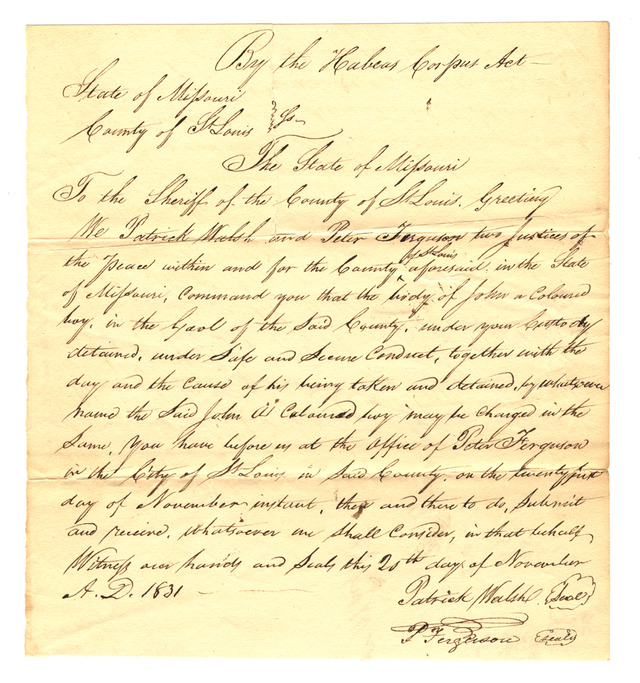 By the Habeas Corpus Act
State of Missouri
County of St Louis } Ss
The State of Missouri
To the Sheriff of the County of St Louis, Greeting
We Patrick Walsh and Peter Ferguson two Justices of
of St Louis
the Peace within and for the County aforesaid in the State
of Missouri, Command you that the body of John a Coloured
boy, in the Gaol of the Said County, under your Custody
detained, under Safe and Secure Conduct, together with the
day and the Cause of his being taken and detained, by whatsoever
name the Said John a Coloured boy may be Charged in the
Same, You have before us at the Office of Peter Ferguson
in the City of St Louis in Said County, on the twenty first
day of November instant, then and there to do, Submit
and receive, whatsoever we Shall Consider, in that behalf
Witness our hands and Seals this 20th day of November
A. D. 1831
Patrick Walsh (Seal)
P Ferguson (Seal)